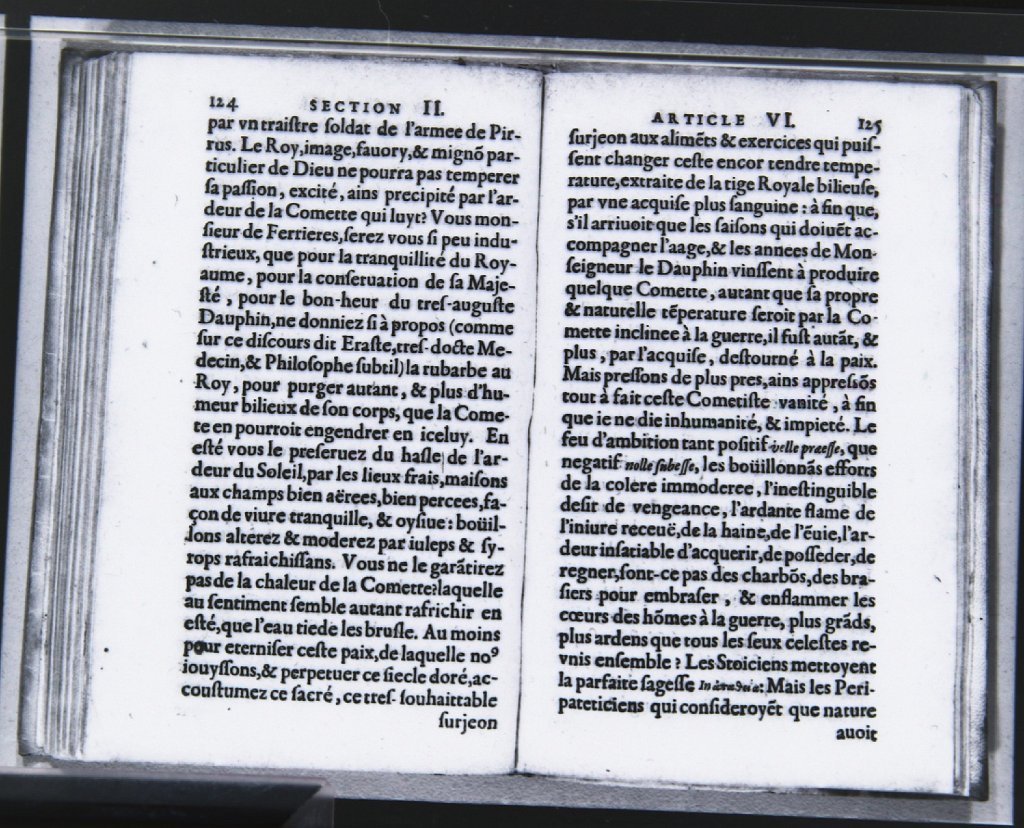 124 SECTION II.
par vn traistre soldat de l'armee de Pir-
rus. Le Roy,image,fauory,& mignō par-
ticulier de Dieu ne pourra pas temperer
sa passion, excité, ains precipité par l'ar-
deur de la Comette qui luyt? Vous mon-
sieur de Ferrieres,serez vous si peu indu-
strieux, que pour la tranquillité du Roy-
aume, pour la conseruation de sa Maje-
sté, pour le bon-heur du tres-auguste
Dauphin,ne donniez si à propos (comme
sur ce discours dit Eraste,tres-docte Me-
decin,& Philosophe subtil) la rubarbe au
Roy, pour purger autant, & plus d'hu-
meur bilieux de son corps, que la Come-
te en pourroit engendrer en iceluy. En
esté vous le preseruez du hasle de l'ar-
deur du Soleil,par les lieux frais,maisons
aux champs bien aërees,bien percees,fa-
çon de viure tranquille, & oysiue: boüil-
lons alterez & moderez par iuleps & sy-
rops rafraichissans. Vous ne le garātirez
pas de la chaleur de la Comette?laquelle
au sentiment semble autant rafrichir en
esté,que l'eau tiede les brusle. Au moins
pour eterniser ceste paix,de laquelle noꝰ
iouyssons,& perpetuer ce siecle doré,ac-
coustumez ce sacré, ce tres-souhaittable
surjeon
ARTICLE VI. 125
surjeon aux alimēts & exercices qui puis-
sent changer ceste encor tendre tempe-
rature,extraite de la tige Royale bilieuse,
par vne acquise plus sanguine: à fin que,
s'il arriuoit que les saisons qui doiuēt ac-
compagner l'aage,& les annees de Mon-
seigneur le Dauphin vinssent à produire
quelque Comette, autant que sa propre
& naturelle tēperature seroit par la Co-
mette inclinee à la guerre,il fust autāt, &
plus, par l'acquise, destourné à la paix.
Mais pressons de plus pres,ains appressōs
tout à fait ceste Cometiste vanité, à fin
que ie ne die inhumanité, & impieté. Le
feu d'ambition tant positif velle praeesse, que
negatif nolle subesse, les boüillonnās efforts
de la colere immoderee, l'inestinguible
desir de vengeance, l'ardante flame de
l'iniure receuë,de la haine,de l'ēuie,l'ar-
deur insatiable d'acquerir,de posseder,de
regner,sont-ce pas des charbōs,des bra-
siers pour embraser, & enflammer les
cœurs des hōmes à la guerre, plus grāds,
plus ardens que tous les feux celestes re-
vnis ensemble? Les Stoiciens mettoyent
la parfaite sagesse In Mais les Peri-
pateticiens qui consideroyēt que nature
auoit